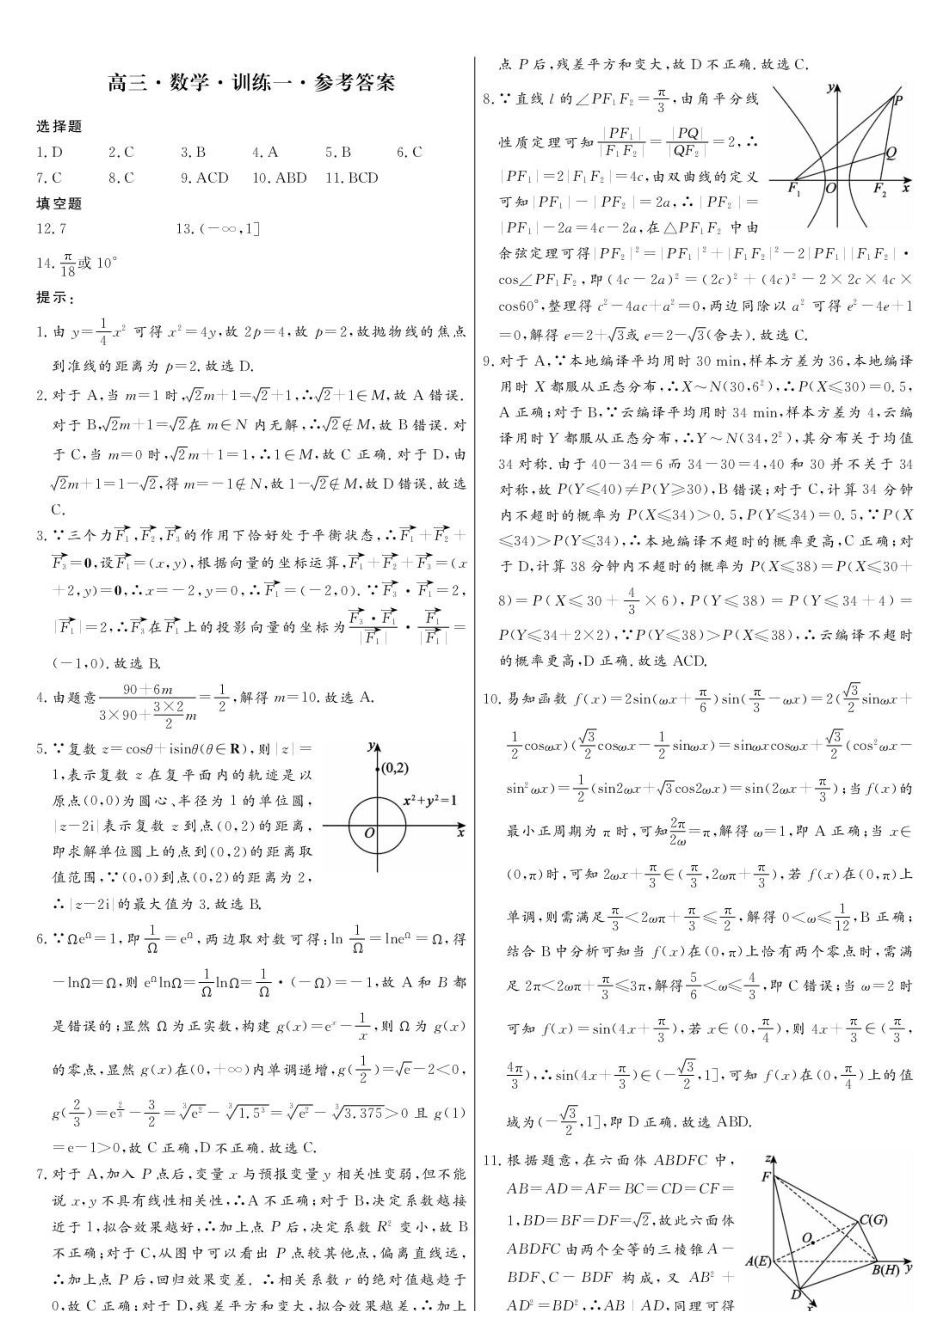 高三·数学·训练一·参考答案
选择题
1.D 2.C 3.B 4.A 5.B 6.C
7.C 8.C 9.ACD 10.ABD 11.BCD
填空题
12.7 13.(-∞,1]
14.π/18或10°
提示:
1.由y=1/4x²可得x²=4y,故2p=4,故p=2,故抛物线的焦点
到准线的距离为p=2.故选D.
2.对于A,当m=1时,√2m+1=√2+1,∴√2+1∈M,故A错误.
对于B,√2m+1=√2在m∈N内无解,∴√2∉M,故B错误.对
于C,当m=0时,√2m+1=1,∴1∈M,故C正确.对于D,由
√2m+1=1-√2,得m=-1∉N,故1-√2∉M,故D错误.故选
C.
3.∵三个力F₁,F₂,F₃的作用下恰好处于平衡状态,∴F₁+F₂+
F₃=0,设F₁=(x,y),根据向量的坐标运算,F₁+F₂+F₃=(x
+2,y)=0,∴x=-2,y=0,∴F₁=(-2,0).∵F₃·F₁=2,
|F₁|=2,∴F₃在F₁上的投影向量的坐标为F₃·F₁/|F₁|·F₁/|F₁|=
(-1,0).故选B.
4.由题意(90+6m)/(3×90+(3×2/2)m)=1/2,解得m=10.故选A.
5.∵复数z=cosθ+isinθ(θ∈R),则|z|=
1,表示复数z在复平面内的轨迹是以
原点(0,0)为圆心、半径为1的单位圆,
|z-2i|表示复数z到点(0,2)的距离,
即求解单位圆上的点到(0,2)的距离取
值范围,∵(0,0)到点(0,2)的距离为2,
∴|z-2i|的最大值为3.故选B.
y
(0,2)
x²+y²=1
O
x
6.∵Ωe^Ω=1,即1/Ω=e^Ω,两边取对数可得:ln 1/Ω=lne^Ω=Ω,得
-lnΩ=Ω,则e^ΩlnΩ=1/ΩlnΩ=1/Ω·(-Ω)=-1,故A和B都
是错误的;显然Ω为正实数,构建g(x)=e^x-1/x,则Ω为g(x)
的零点,显然g(x)在(0,+∞)内单调递增,g(1/2)=√e-2<0,
g(2/3)=e^(2/3)-3/2=³√e²-³√1.5³=³√e²-³√3.375>0且g(1)
=e-1>0,故C正确,D不正确.故选C.
7.对于A,加入P点后,变量x与预报变量y相关性变弱,但不能
说x,y不具有线性相关性,∴A不正确;对于B,决定系数越接
近于1,拟合效果越好,∴加上点P后,决定系数R²变小,故B
不正确;对于C,从图中可以看出P点较其他点,偏离直线远,
∴加上点P后,回归效果变差.∴相关系数r的绝对值越趋于
0,故C正确;对于D,残差平方和变大,拟合效果越差,∴加上
点P后,残差平方和变大,故D不正确.故选C.
8.∵直线l的∠PF₁F₂=π/3,由角平分线
性质定理可知|PF₁|/|F₁F₂|=|PQ|/|QF₂|=2,∴
|PF₁|=2|F₁F₂|=4c,由双曲线的定义
可知|PF₁|-|PF₂|=2a,∴|PF₂|=
|PF₁|-2a=4c-2a,在△PF₁F₂中由
y
P
Q
F₁
O
F₂
x
余弦定理可得|PF₂|²=|PF₁|²+|F₁F₂|²-2|PF₁||F₁F₂|·
cos∠PF₁F₂,即(4c-2a)²=(2c)²+(4c)²-2×2c×4c×
cos60°,整理得c²-4ac+a²=0,两边同除以a²可得e²-4e+1
=0,解得e=2+√3或e=2-√3(舍去).故选C.
9.对于A,∵本地编译平均用时30 min,样本方差为36,本地编译
用时X都服从正态分布,∴X~N(30,6²),∴P(X≤30)=0.5,
A正确;对于B,∵云编译平均用时34 min,样本方差为4,云编
译用时Y都服从正态分布,∴Y~N(34,2²),其分布关于均值
34对称.由于40-34=6而34-30=4,40和30并不关于34
对称,故P(Y≤40)≠P(Y≥30),B错误;对于C,计算34分钟
内不超时的概率为P(X≤34)>0.5,P(Y≤34)=0.5,∵P(X
≤34)>P(Y≤34),∴本地编译不超时的概率更高,C正确;对
于D,计算38分钟内不超时的概率为P(X≤38)=P(X≤30+
8)=P(X≤30+4/3×6),P(Y≤38)=P(Y≤34+4)=
P(Y≤34+2×2),∵P(Y≤38)>P(X≤38),∴云编译不超时
的概率更高,D正确.故选ACD.
10.易知函数f(x)=2sin(ωx+π/6)sin(π/3-ωx)=2(√3/2sinωx+
1/2cosωx)(√3/2cosωx-1/2sinωx)=sinωxcosωx+√3/2(cos²ωx-
sin²ωx)=1/2(sin2ωx+√3cos2ωx)=sin(2ωx+π/3);当f(x)的
最小正周期为π时,可知2π/2ω=π,解得ω=1,即A正确;当x∈
(0,π)时,可知2ωx+π/3∈(π/3,2ωπ+π/3),若f(x)在(0,π)上
单调,则需满足π/3<2ωπ+π/3≤π/2,解得0<ω≤1/12,B正确;
结合B中分析可知当f(x)在(0,π)上恰有两个零点时,需满
足2π<2ωπ+π/3≤3π,解得5/6<ω≤4/3,即C错误;当ω=2时
可知f(x)=sin(4x+π/3),若x∈(0,π/4),则4x+π/3∈(π/3,
4π/3),∴sin(4x+π/3)∈(-√3/2,1],可知f(x)在(0,π/4)上的值
域为(-√3/2,1],即D正确.故选ABD.
11.根据题意,在六面体ABDFC中,
AB=AD=AF=BC=CD=CF=
1,BD=BF=DF=√2,故此六面体
ABDFC由两个全等的三棱锥A-
BDF、C-BDF构成,又AB²+
AD²=BD²,∴AB⊥AD,同理可得
z
F
C(G)
O
A(E)
B(H) y
D
x